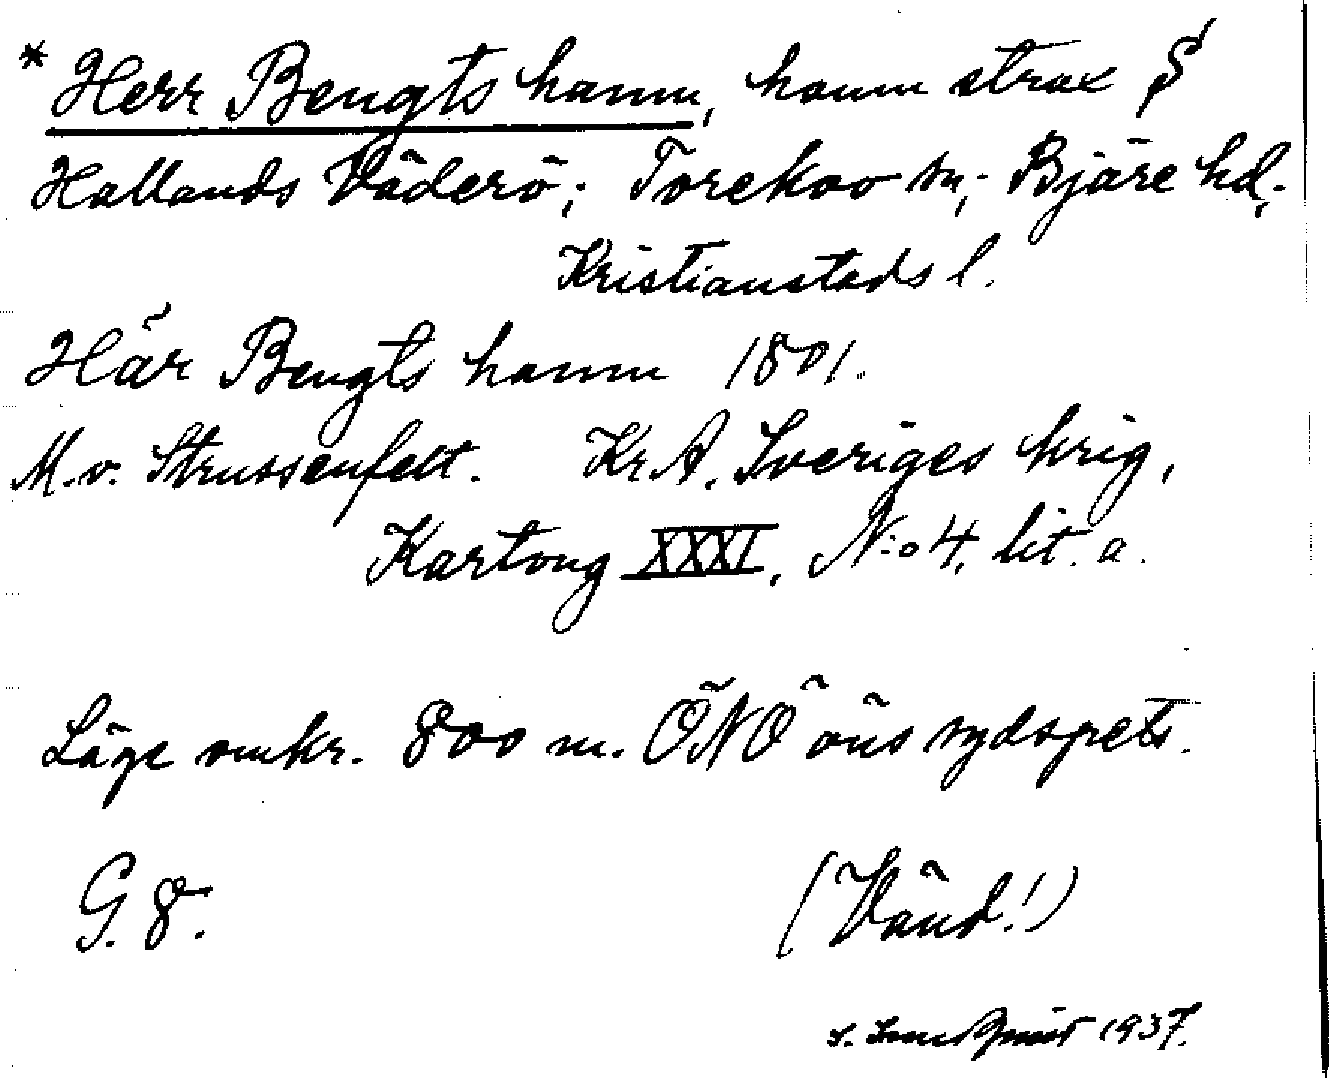 * Herr Bengts hamn, hamn strax S
Hallands Väderö; Torekov sn; Bjäre hd;
Kristianstads l.
Här Bengts hamn 1801.
M. v. Strussenfelt. Kr. A. Sveriges krig,
Kartong XXXI, N:o 4, lit. a.
Läge omkr. 800 m. ÖNÖ öns sydspets.
G. 8.
(Vänd!)
1937.